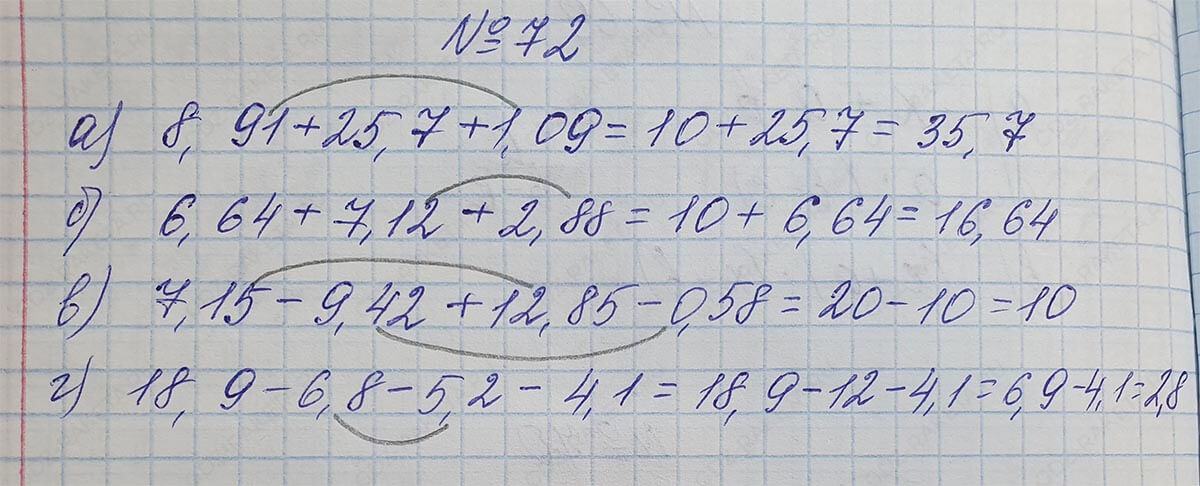 №72
а) 8,91+25,7+1,09=10+25,7=35,7
б) 6,64+7,12+2,88=10+6,64=16,64
в) 7,15-9,42+12,85-0,58=20-10=10
г) 18,9-6,8-5,2-4,1=18,9-12-4,1=6,9-4,1=2,8